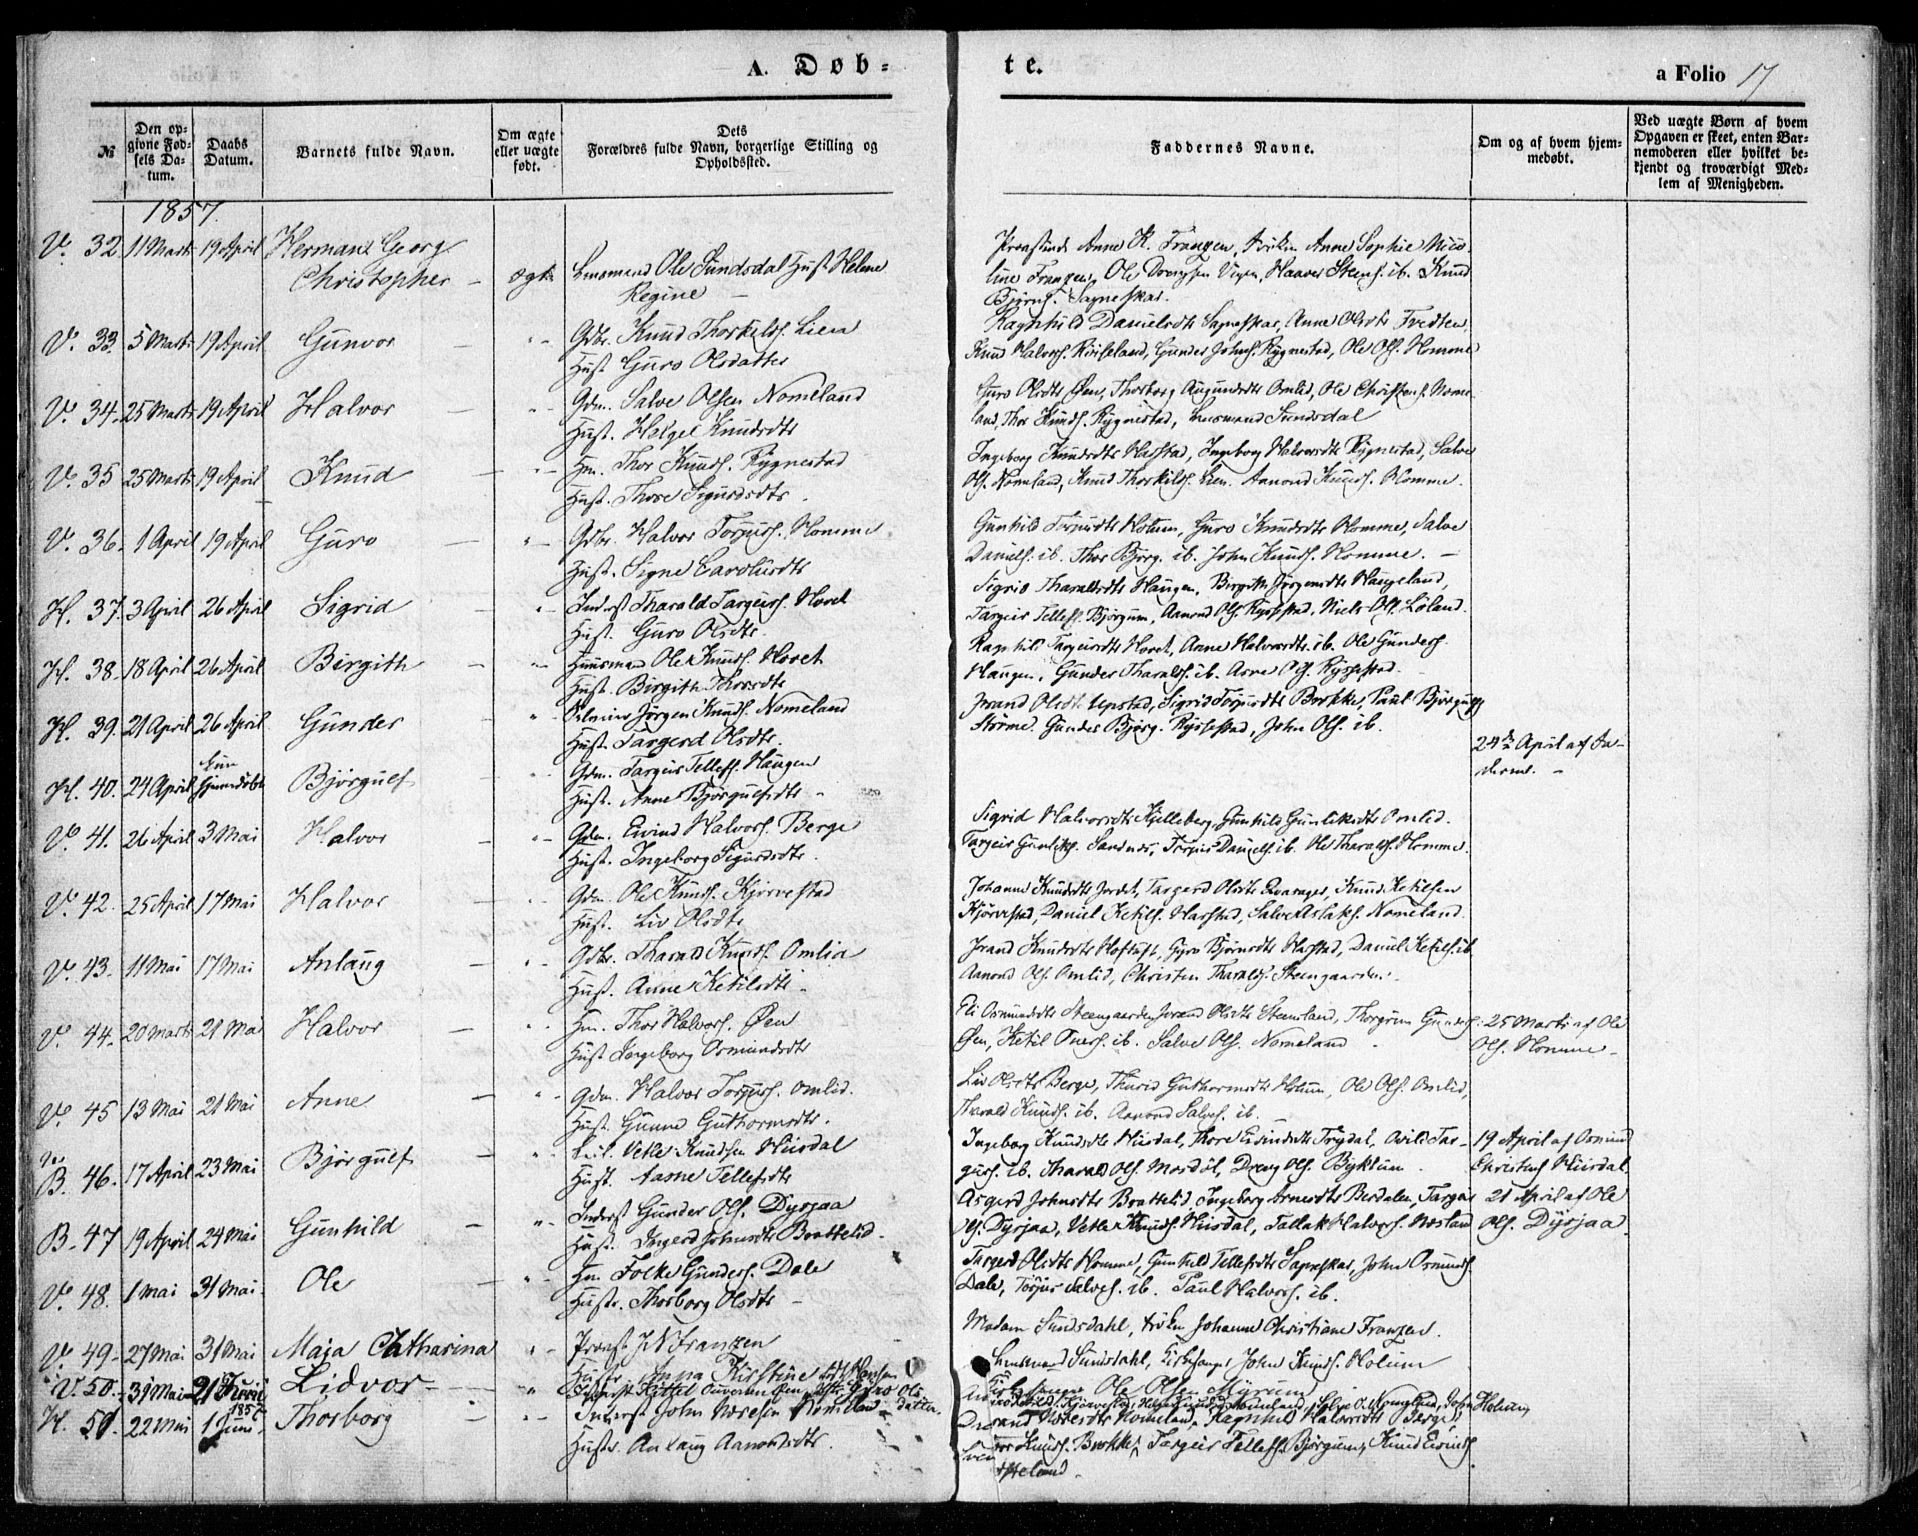 A. Døb-
№
Den op-
givne Fød-
sels Da-
tum.
Daabs
Datum.
Barnets fulde Navn.
Om ægte
eller uægte
født.
Dets
Forældres fulde Navn, borgerlige Stilling og
Opholdssted.
1857.
V. 32. 11 Marts 19 April Hermann Georg
Christopher - ægte Lensmand Ole Sundsdal Hust. Helene
Regine -
V. 33. 5 Marts 19 April Gunvor - " - Gdbr. Knud Thorkels. Lien
Hust Guro Olsdatter
V. 34. 25 Marts 19 April Halvor - " - Gdm. Salve Olsen Nomeland
Hust. Helgei Knudsdtr
V. 35 25 Marts 19 April Knud - " - Hm. Thor Knuds. Rygnestad
Hust. Thore Sigurdsdtr.
V. 36. 1 April 19 April Guro - " - Gdbr. Halvor Torjus. Homme
Hust. Signe Carolusdtr
H. 37. 3 April 26 April Sigrid - " - Inderst Tharald Targeirs. Hovet
Hust. Guro Olsdtr.
H. 38. 18 April 26 April Birgith - " - Huusmand Ole Knuds. Hovet
Hust. Birgith Thorsdtr
H. 39. 21 April 26 April Gunder " - Jørgen Knuds. Nomeland
Hust. Targerd Olsdtr.
H. 40. 24 April kun hjemmedøbt Bjørgulf - " - Gdm. Targeir Tellefs. Haugen
Hust. Anne Bjørgulfsdtr -
V. 41. 26 April 3 Mai Halvor - " - Gdm. Eivind Halvors. Berge
Hust. Ingeborg Sigurdsdtr.
V. 42. 25 April 17 Mai Halvor - " - Gdm. Ole Knuds. Kjørvestad
Hust. Liv Olsdtr
V. 43. 11 Mai 17 Mai Anlaug - " - Gdbr. Tharald Knuds. Omlid
Hust. Anne Ketilsdtr.
V. 44. 20 Marts 21 Mai Halvor - " - Hm. Thor Halvors. Øen
Hust Ingeborg Osmundsdtr
V. 45 13 Mai 21 Mai Anne - " - Gdm. Halvor Torjus. Omlid.
Hust. Gunne Guthormsdtr.
B. 46. 17 April 23 Mai Bjørgulf - " - Leil. Vetle Knudsen Husdal
Hust. Aasne Tellefsdtr
B. 47 19 April 24 Mai Gunhild - " - Inderst Gunder Ols. Dysjaa
Hust. Ingerd Johnsdtr Brattelid.
V. 48. 1 Mai 31 Mai. Ole - " - Hm. Folke Gunders. Dale
Hustr. Thorborg Olsdtr -
V. 49. 27 Mai 31 Mai Maja Catharina " - Provst J N Franzen
Hustr. Anna Kirstine Hansen
V. 50. 31 Mai 21 Juni Lidvor - " Inderst Kittel Øen Hustr Guro Ols
datter.
H. 51. 22 Mai 1 Juni 1857 Thorborg - " - Inderst John Næresen Nomeland
Hustr. Anlaug Aanondsdtr.
te.
a Folio 17
Faddernes Navne.
Om og af hvem hjem-
medøbt.
Ved uægte Børn af hvem
Opgaven er skeet, enten Bar-
nemoderen eller hvilket be-
kjendt og troværdigt Med-
lem af Menigheden.
Provstinde Anne K. Franzen, Frøken Anne Sophie Nico-
line Franzen, Ole Drengsen Viken, Haavor Steens. ib. Knud
Bjørns. Sagneskar.
Ragnhild Danielsdtr Sagneskar, Anne Olsdtr Tvedten,
Knud Halvors. Rinseland, Gunder Johns. Rygnestad, Ole Ols. Homme
Guro Olsdtr Øen, Thorborg Augundsdtr Omlid, Ole Christens. Nome-
land, Thor Knuds. Rygnestad, Lensmand Sundsdal
Ingeborg Knudsdtr Harstad, Ingeborg Halvorsdtr Rygnestad, Salve
Ols. Nomeland, Knud Thorkils. Lien. Aanond Knuds. Homme.
Gunhild Torjusdtr Holum, Guro Knudsdtr Homme, Salve
Daniels. ib. Thor Bjørg. ib. John Knuds. Homme. -
Sigrid Tharaldsdtr Haugen, Birgith Jørgensdtr Haugeland,
Targeir Tellefs. Bjørgum, Aanond Ols. Rysstad, Niels Ols. Løland.
Ragnhild Targeirsdtr Hovet, Anne Halvorsdtr. ib. Ole Gunders.
Haugen, Gunder Tharalds. ib. Asne Ols. Ryssestad.
Jorand Olsdtr Upstad, Sigrid Torjusdtr Brokke, Paul Bjørgulfs
Størme. Gunder Bjørg. Ryssestad, John Ols. ib.
24de April af Fa-
deren. -
Sigrid Halvorsdtr Kjelleberg, Gunhild Gunleiksdtr Omlid.
Targeir Gunleiks. Sandnes, Torjus Daniels. ib. Ole Tharalds. Homme.
Johanne Knudsdtr Jordet, Targerd Olsdtr Kvarager, Knud Ketilsen
Kjørvestad, Daniel Ketils. Harstad, Salve Aslaks. Nomeland.
Jorand Knudsdtr Hoftuft, Gyro Bjørnsdtr Harstad, Daniel Ketils. ib
Aanond Ols. Omlid, Christen Tharalds. Steengaarden.
Eli Osmundsdtr Steengaarden Jorand Olsdtr Steensland, Thorgrim Gunders.
25 Marts af Ole
Øen, Ketil Tvers. ib. Salve Ols. Nomeland
Ols. Homme -
Liv Olsdtr Berge, Thurid Guthormsdtr Holum, Ole Ols. Omlid,
Tharald Knuds. ib. Aanond Salves. ib.
Ingeborg Knudsdtr Husdal, Thore Eivindsdtr Trydal, Tar-
19 April af Osmund
gus. ib. Tharald Ols. Mosdøl, Dreng Ols. Byklum.
Christens Husdal
Asgerd Johnsdtr Brattelid, Ingeborg Arnesdtr Berdalen, Targeir
21 April af Ole
Ols. Dysjaa, Vetle Knuds. Husdal, Tallak Halvors. Næsland
Ols. Dysjaa.
Targerd Olsdtr Homme, Gunhild Tellefsdtr Sagneskar, John Osmunds.
Dale, Torjus Salves. ib. Paul Halvors. ib.
Madam Sundsdahl, frøken Johanne Christiane Franzen.
Lensmand Sundsdahl, Kirkesanger John Knuds. Holum
Kirkesanger Ole Olsen Myrum
Kjørvestad, Nomeland, John Holum
Ragnhild Halvorsdtr Berge,
Knuds. Brokke, Targeir Tellefs. Bjørgum, Knud Eivinds.
Helland.